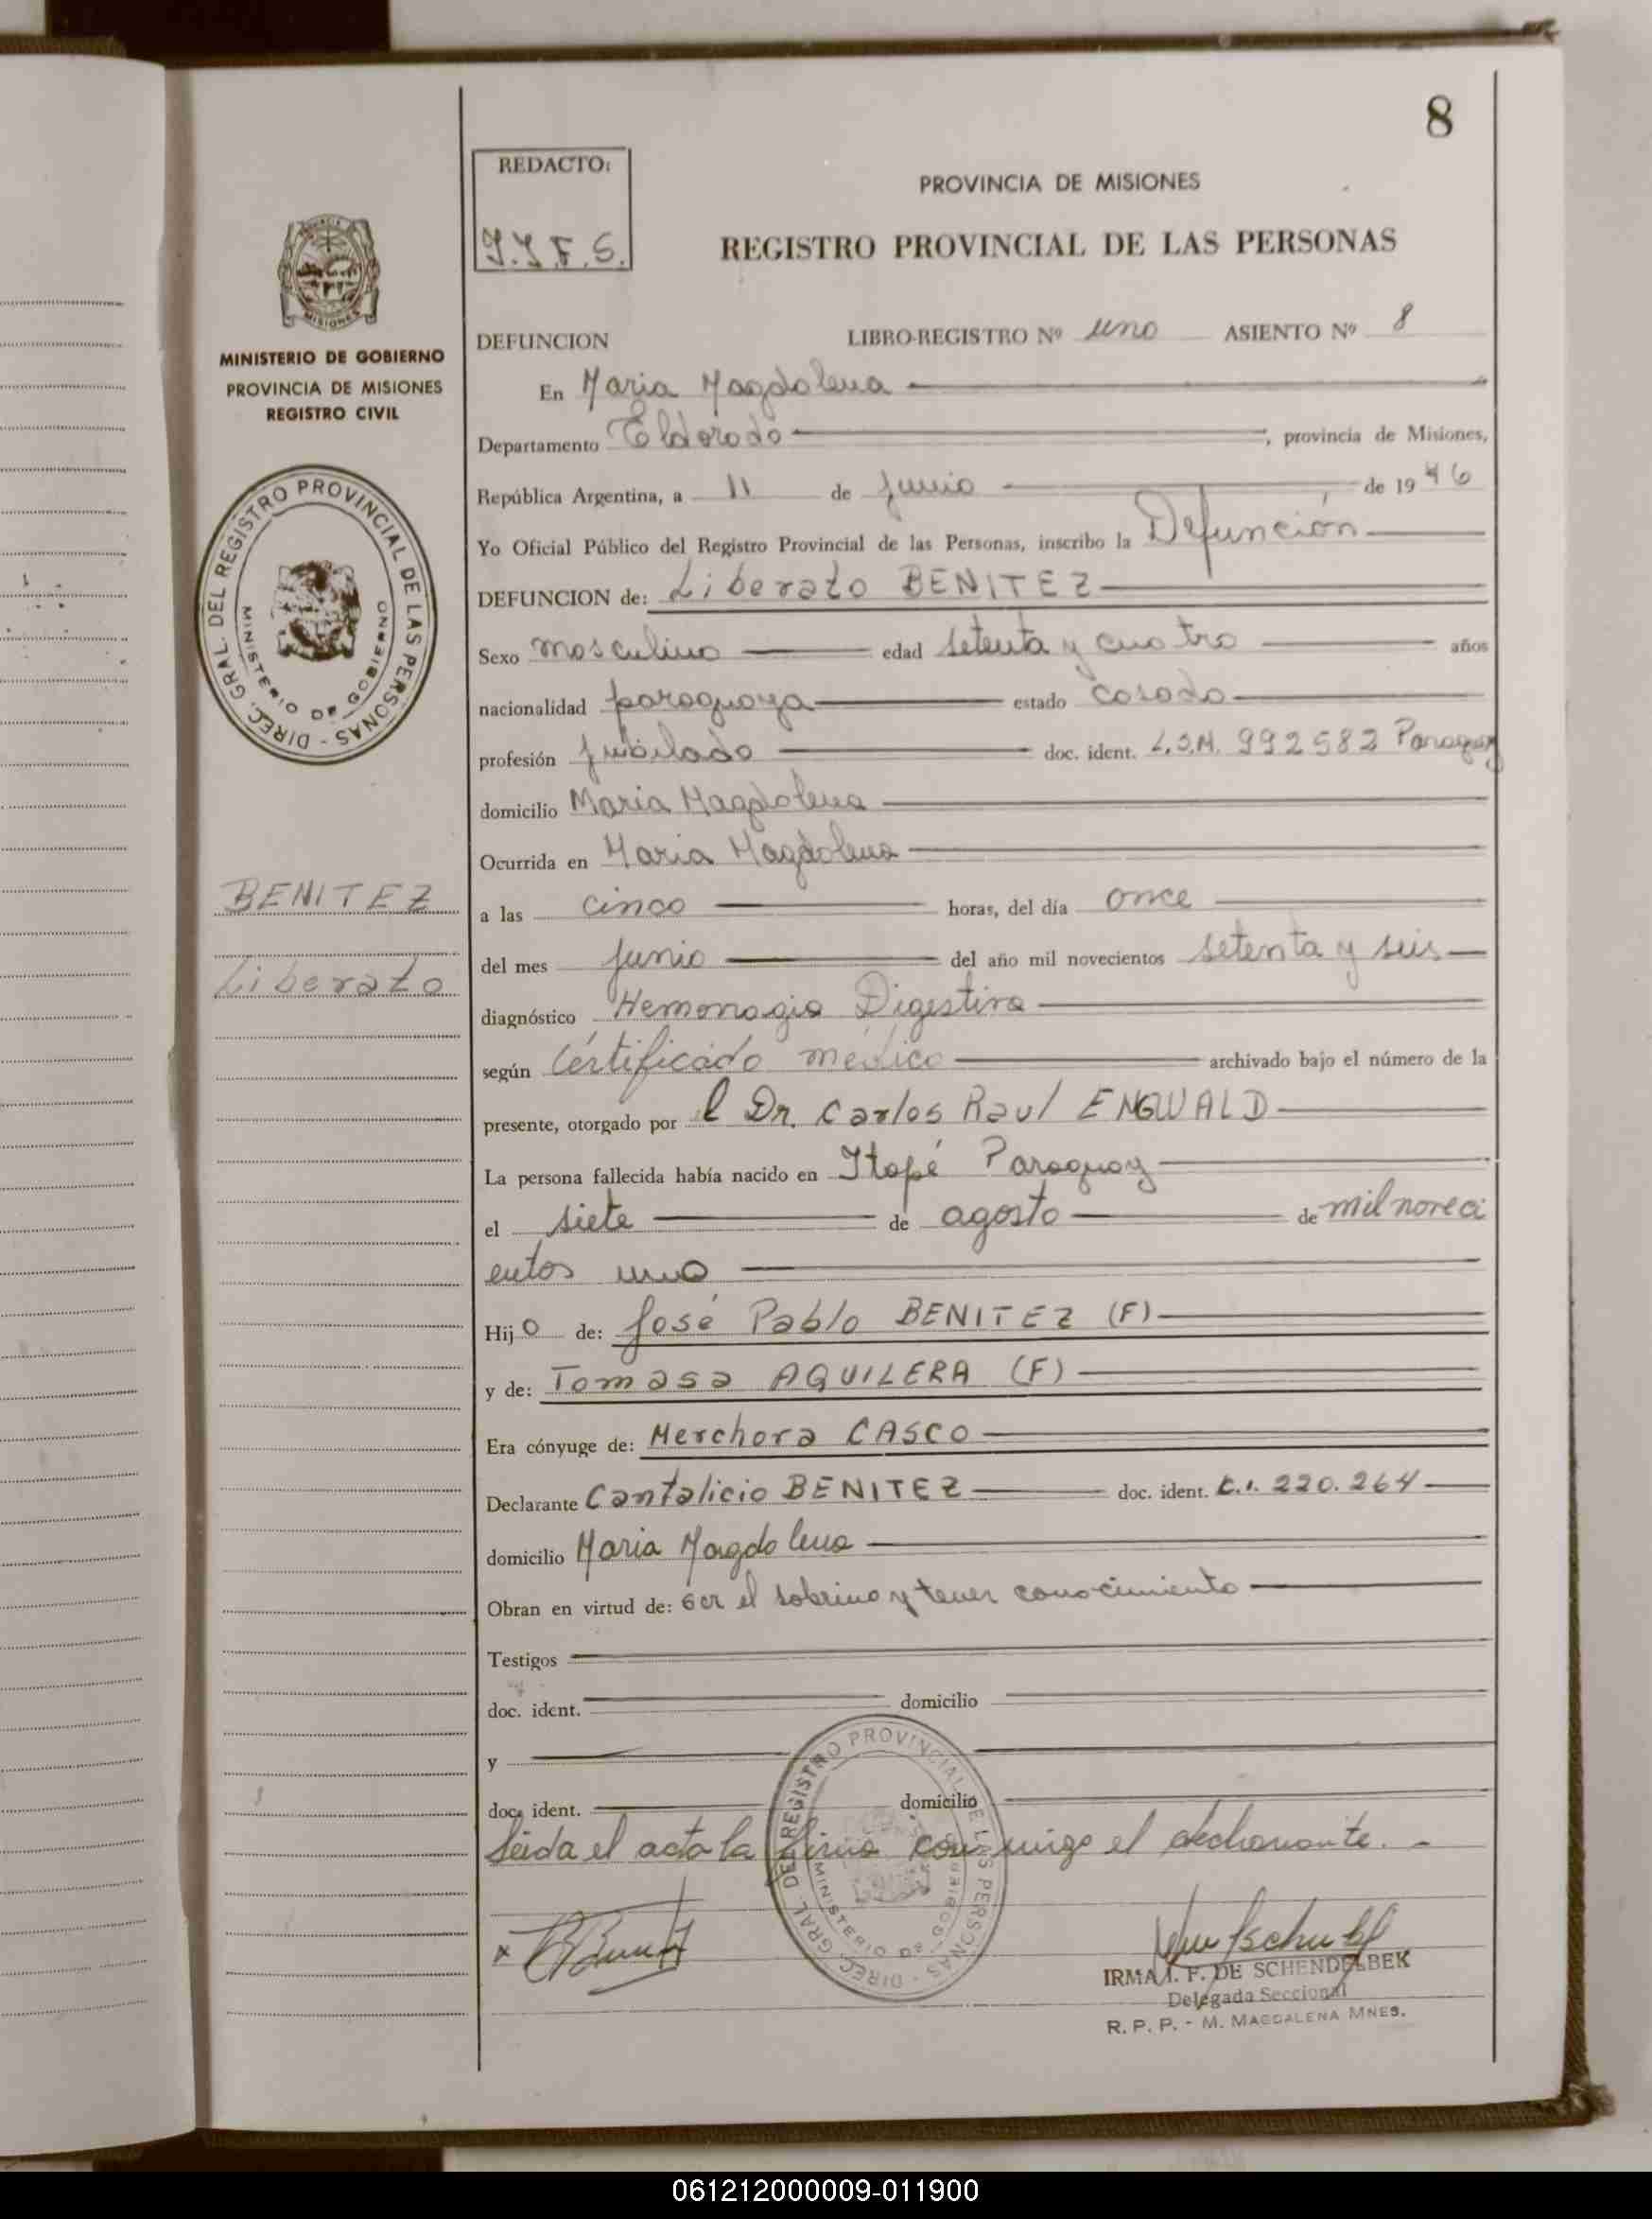 8
REDACTO:
PROVINCIA DE MISIONES
REGISTRO PROVINCIAL DE LAS PERSONAS
MISIONES
MINISTERIO DE GOBIERNO
PROVINCIA DE MISIONES
REGISTRO CIVIL
DIREC. GRAL. DEL REGISTRO PROVINCIAL DE LAS PERSONAS -
MINISTERIO DE GOBIERNO
BENITEZ
Liberato
DEFUNCION LIBRO-REGISTRO Nº uno ASIENTO Nº 8
En Maria Magdalena
Departamento Eldorado, provincia de Misiones,
República Argentina, a 11 de junio de 19
Yo Oficial Público del Registro Provincial de las Personas, inscribo la Defunción
DEFUNCION de: Liberato BENITEZ
Sexo masculino edad setenta y cuatro años
nacionalidad paraguaya estado casado
profesión jubilado doc. ident. 992582 Paraguay
domicilio Maria Magdalena
Ocurrida en Maria Magdalena
a las cinco horas, del día once
del mes junio del año mil novecientos setenta y seis
diagnóstico Hemorragia Digestiva
según Certificado médico archivado bajo el número de la
presente, otorgado por el Dr. Carlos Raul ENGWALD
La persona fallecida había nacido en Itapé Paraguay
el siete de agosto de mil noveci
entos uno
Hijo de: José Pablo BENITEZ (F)
y de: Tomasa AQUILERA (F)
Era cónyuge de: Merchora CASCO
Declarante Cantalicio BENITEZ doc. ident. C.I. 220.264
domicilio Maria Magdalena
Obran en virtud de: ser el sobrino y tener conocimiento
Testigos
doc. ident. domicilio
y
doc. ident. domicilio
Leida el acta la firma conmigo el declarante. -
DIREC. GRAL. DEL REGISTRO PROVINCIAL DE LAS PERSONAS -
MINISTERIO DE GOBIERNO
IRMA I. F. DE SCHENDELBEK
Delegada Seccional
R. P. P. - M. MAGDALENA MNES.
061212000009-011900